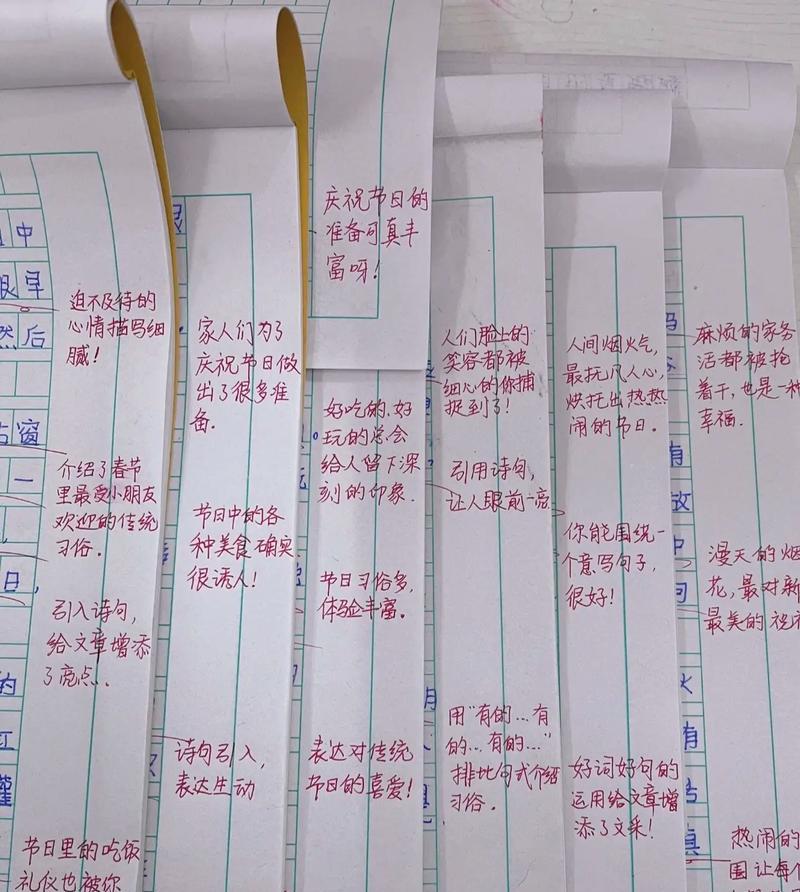 迫不及待的
心情描写细
腻！
介绍了春节
里最受小朋友
欢迎的传统
习俗.
引入诗句，
给文章增添
了亮点.
节日里的吃饭
礼仪也被你
中
眼早
然后
窗
一
日，
的
红
家人们为了
庆祝节日做
出了很多准
备.
节日中的各
种美食确实
很诱人！
诗句引入，
表达生动
庆祝节日的
准备可真丰
富呀！
好吃的、好
玩的总会
给人留下深
刻的印象.
节日习俗多，
体验丰富。
表达对传统
节日的喜爱！
人们脸上的
笑容都被
细心的你捕
捉到了！
引用诗句，
让人眼前一亮
用“有的…有
的…有的…”
排比句式介绍
习俗.
人间烟火气，
最抚凡人心，
烘托出热热
闹的节日.
你能围绕一
个意写句子，
很好！
好词好句的
运用给文章增
添了文采！
麻烦的家务
活都被抢
着干，也是一种
幸福.
漫天的烟
花，最对新
最美的祝
热闹的
围让每
有
放
中
火
有